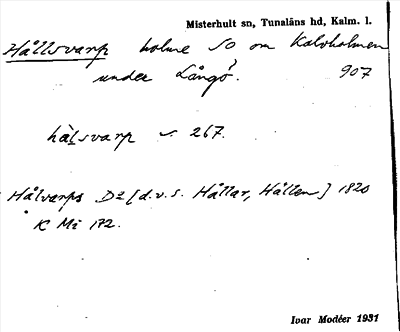 Misterhult sn, Tunaläns hd, Kalm. l.
Hållsvarp holme SO om Kalvholmen
under Långö?. 907
hålsvarp s. 267.
Hålvarps D2 [d.v.s. Hållar, Hållen] 1820
K Mi 172.
Ivar Modéer 1931